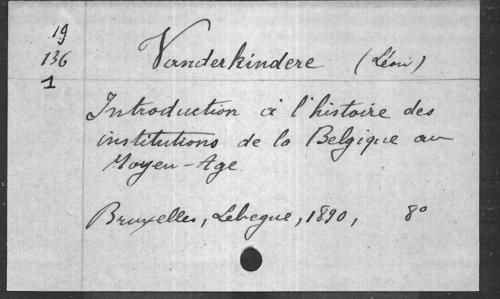 19
136
1
Vanderkindere (Léon)
Introduction à l'histoire des
institutions de la Belgique au
Moyen-Age
Bruxelles, Lebegue, 1890, 8°